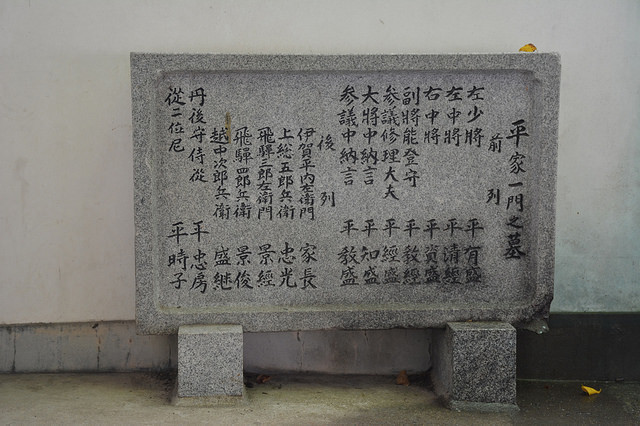 平家一門之墓
前列
左少將 平有盛
左中將 平清經
右中將 平資盛
副將能登守 平教經
參議修理大夫 平經盛
大將中納言 平知盛
參議中納言 平教盛
後列
伊賀平内左衛門 家長
上総五郎兵衛 忠光
飛驒三郎左衛門 景經
飛驒四郎兵衛 景俊
越中次郎兵衛 盛継
丹後守侍從 平忠房
從二位尼 平時子